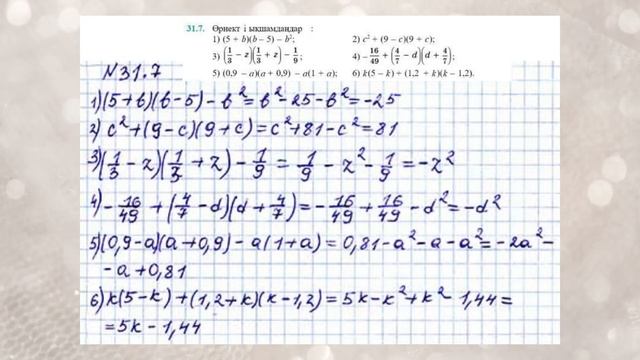 31.7. Өрнект і ықшамдаңдар :
1) (5 + b)(b – 5) – b²; 2) c² + (9 – c)(9 + c);
3) (1/3 – z)(1/3 + z) – 1/9; 4) –16/49 + (4/7 – d)(d + 4/7);
5) (0,9 – a)(a + 0,9) – a(1 + a); 6) k(5 – k) + (1,2 + k)(k – 1,2).
№31.7
1)(5+b)(b-5) - b² = b² - 25 - b² = -25
2) c² + (9 - c)(9 + c) = c² + 81 - c² = 81
3)(1/3 - z)(1/3 + z) - 1/9 = 1/9 - z² - 1/9 = -z²
4) -16/49 + (4/7 - d)(d + 4/7) = -16/49 + 16/49 - d² = -d²
5)(0,9-a)(a+0,9) - a(1+a) = 0,81 - a² - a - a² = -2a² -
- a + 0,81
6) k(5-k) + (1,2+k)(k-1,2) = 5k - k² + k² - 1,44 =
= 5k - 1,44